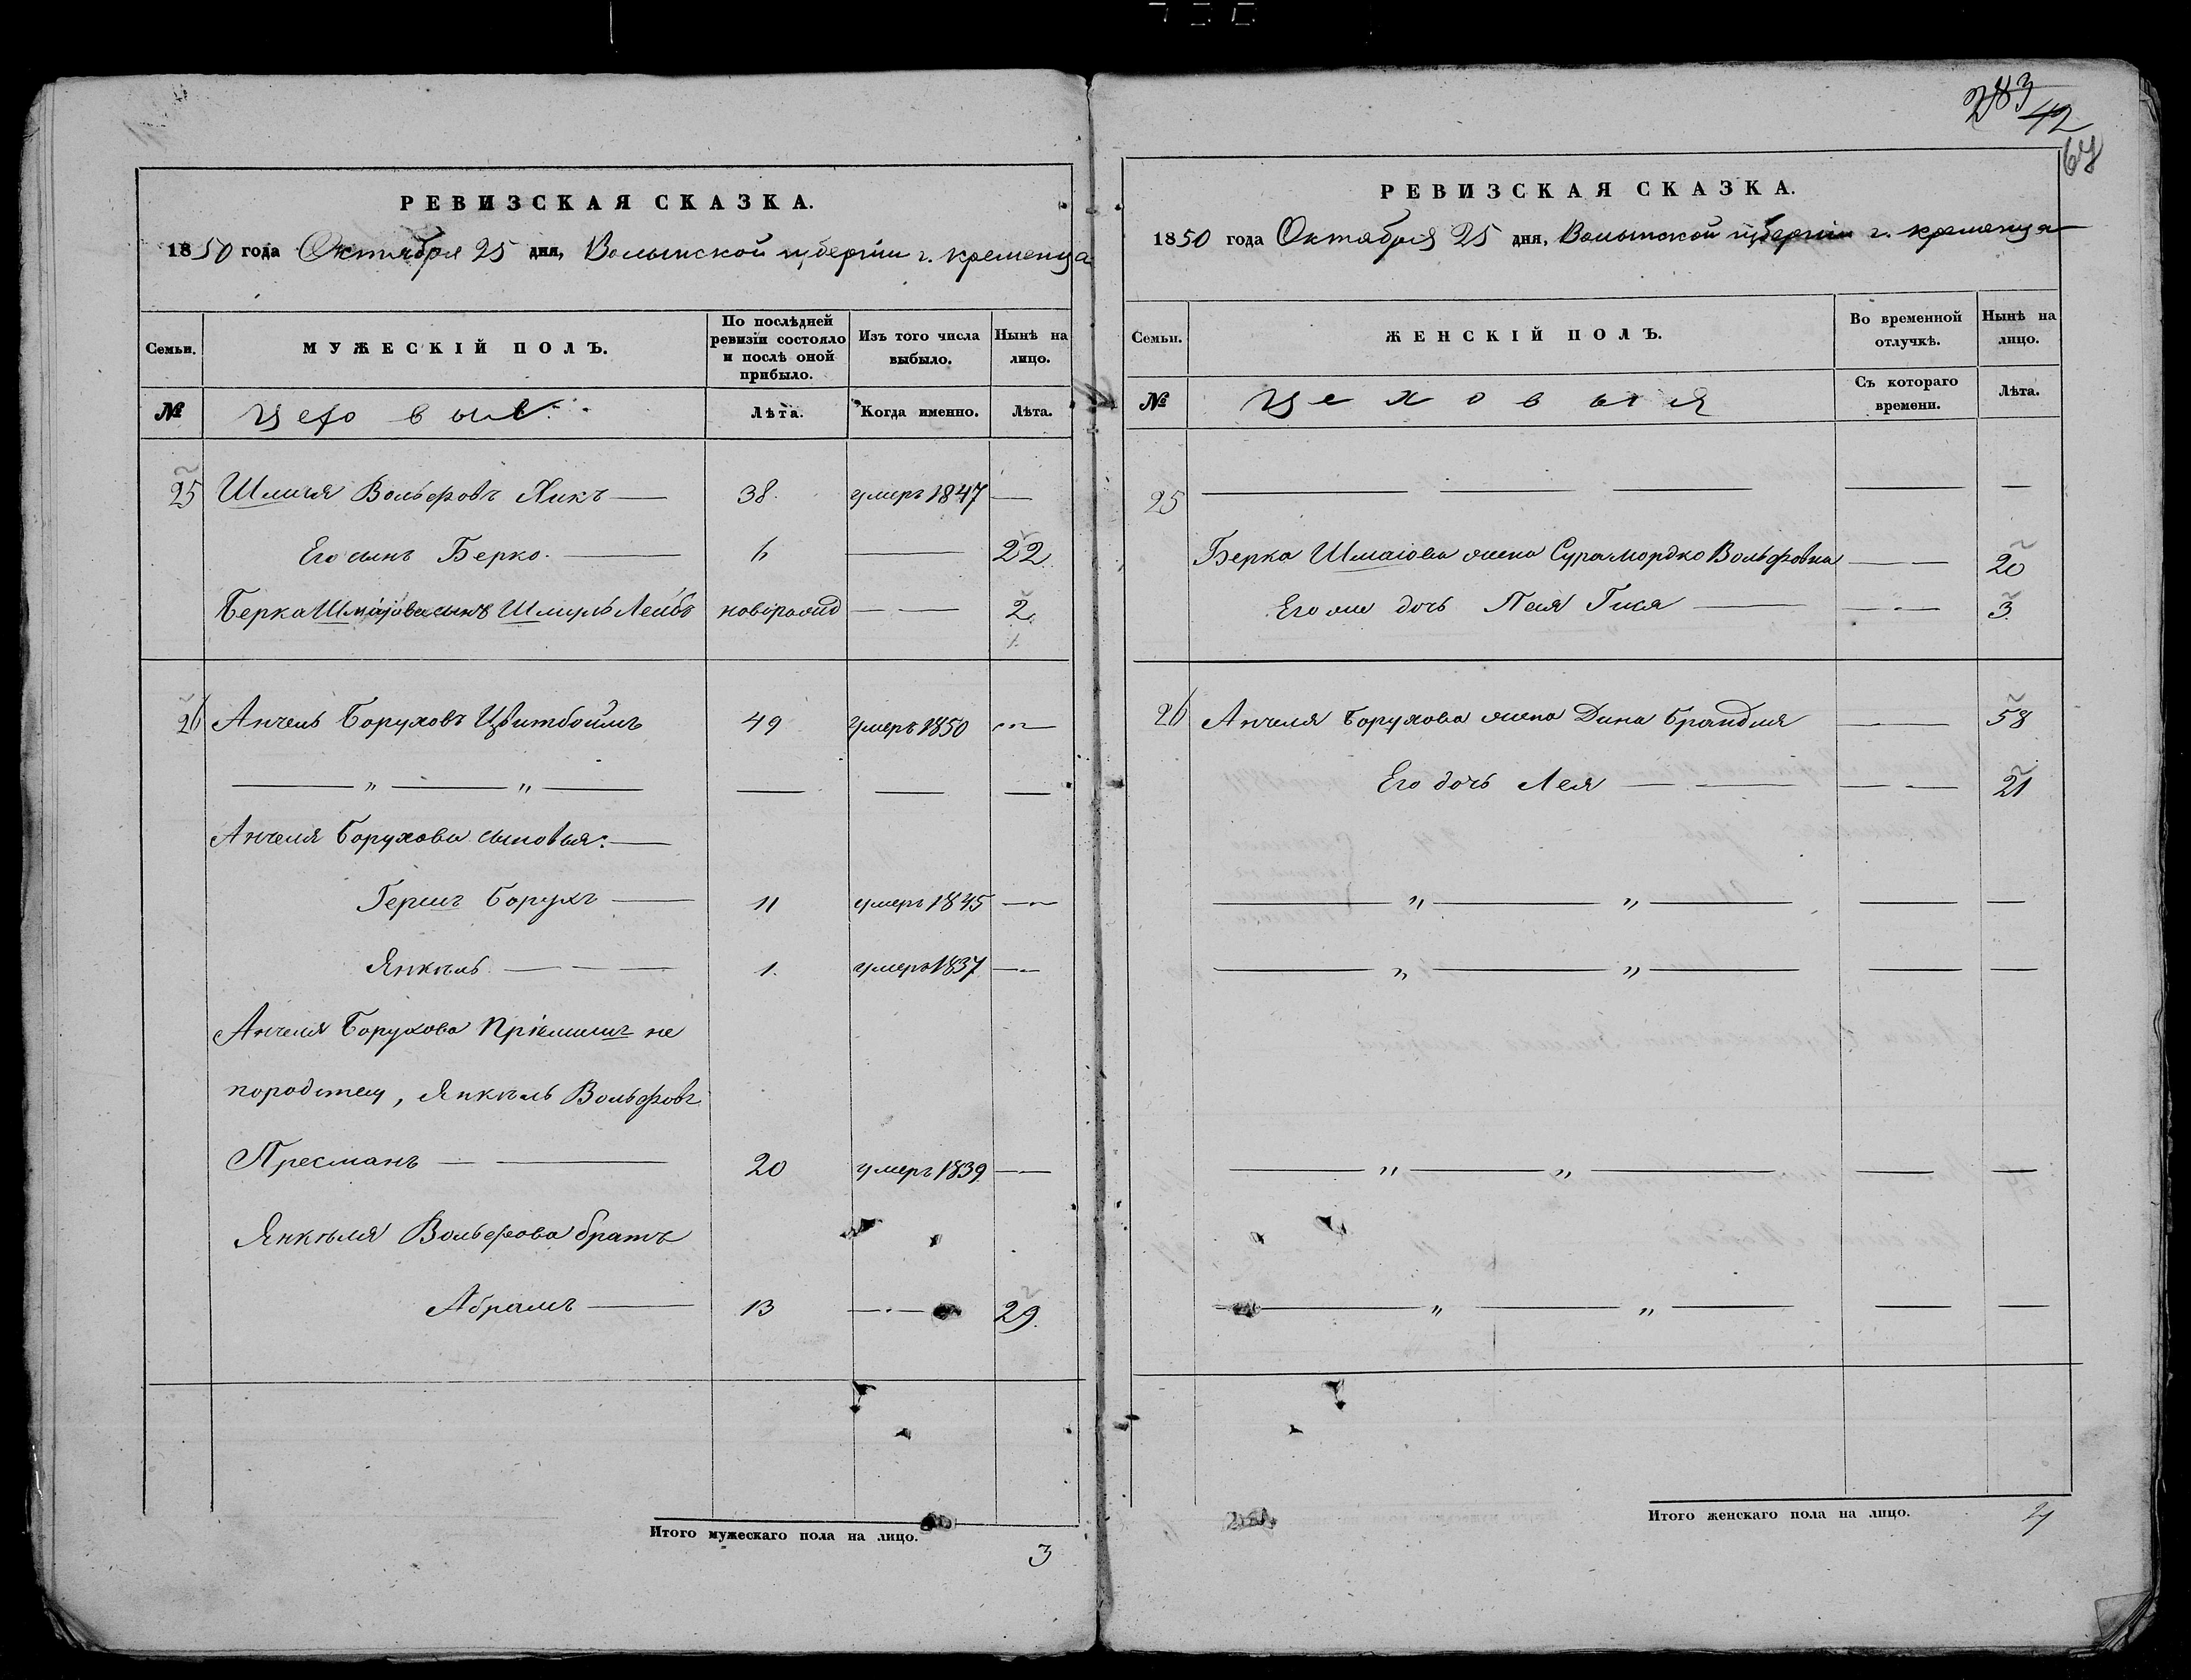 283
42
67
РЕВИЗСКАЯ СКАЗКА.
1850 года Октября 25 дня, Волынской губернiи г. кременца
Семьи.
МУЖЕСКІЙ ПОЛЪ.
По послѣдней ревизіи состояло и послѣ оной прибыло.
Изъ того числа выбыло.
Нынѣ на лицо.
№
Цеховые
Лѣта.
Когда именно.
Лѣта.
25 Шмаія Вольфовъ Кикъ 38. умеръ 1847
Его сынъ Берко. 6 22
Берка Шмаіова сынъ Шмуль Лейбъ новорожд 2.
1.
26 Анчель Боруховъ Цвитбоймъ 49 умеръ 1850
Анчеля Борухова сыновья:
Гершъ Борухъ 11 умеръ 1845
Янкель 1. умеръ 1837
Анчеля Борухова Пріемышъ не
породству, Янкель Вольфовъ
Пресманъ 20 умеръ 1839
Янкеля Вольфова братъ
Абрамъ 13 29.
Итого мужескаго пола на лицо.
3
РЕВИЗСКАЯ СКАЗКА.
1850 года Октября 25 дня, Волынской губернiи г. кременца
Семьи.
ЖЕНСКІЙ ПОЛЪ.
Во временной отлучкѣ.
Нынѣ на лицо.
№
Цеховыя
Съ котораго времени.
Лѣта.
25
Берка Шмаіова жена Сура Мордко Вольфовна 20
Его же дочь Песя Гися 3.
26 Анчеля Борухова жена Дина Брандля 58
Его дочь Лея 21
Итого женскаго пола на лицо.